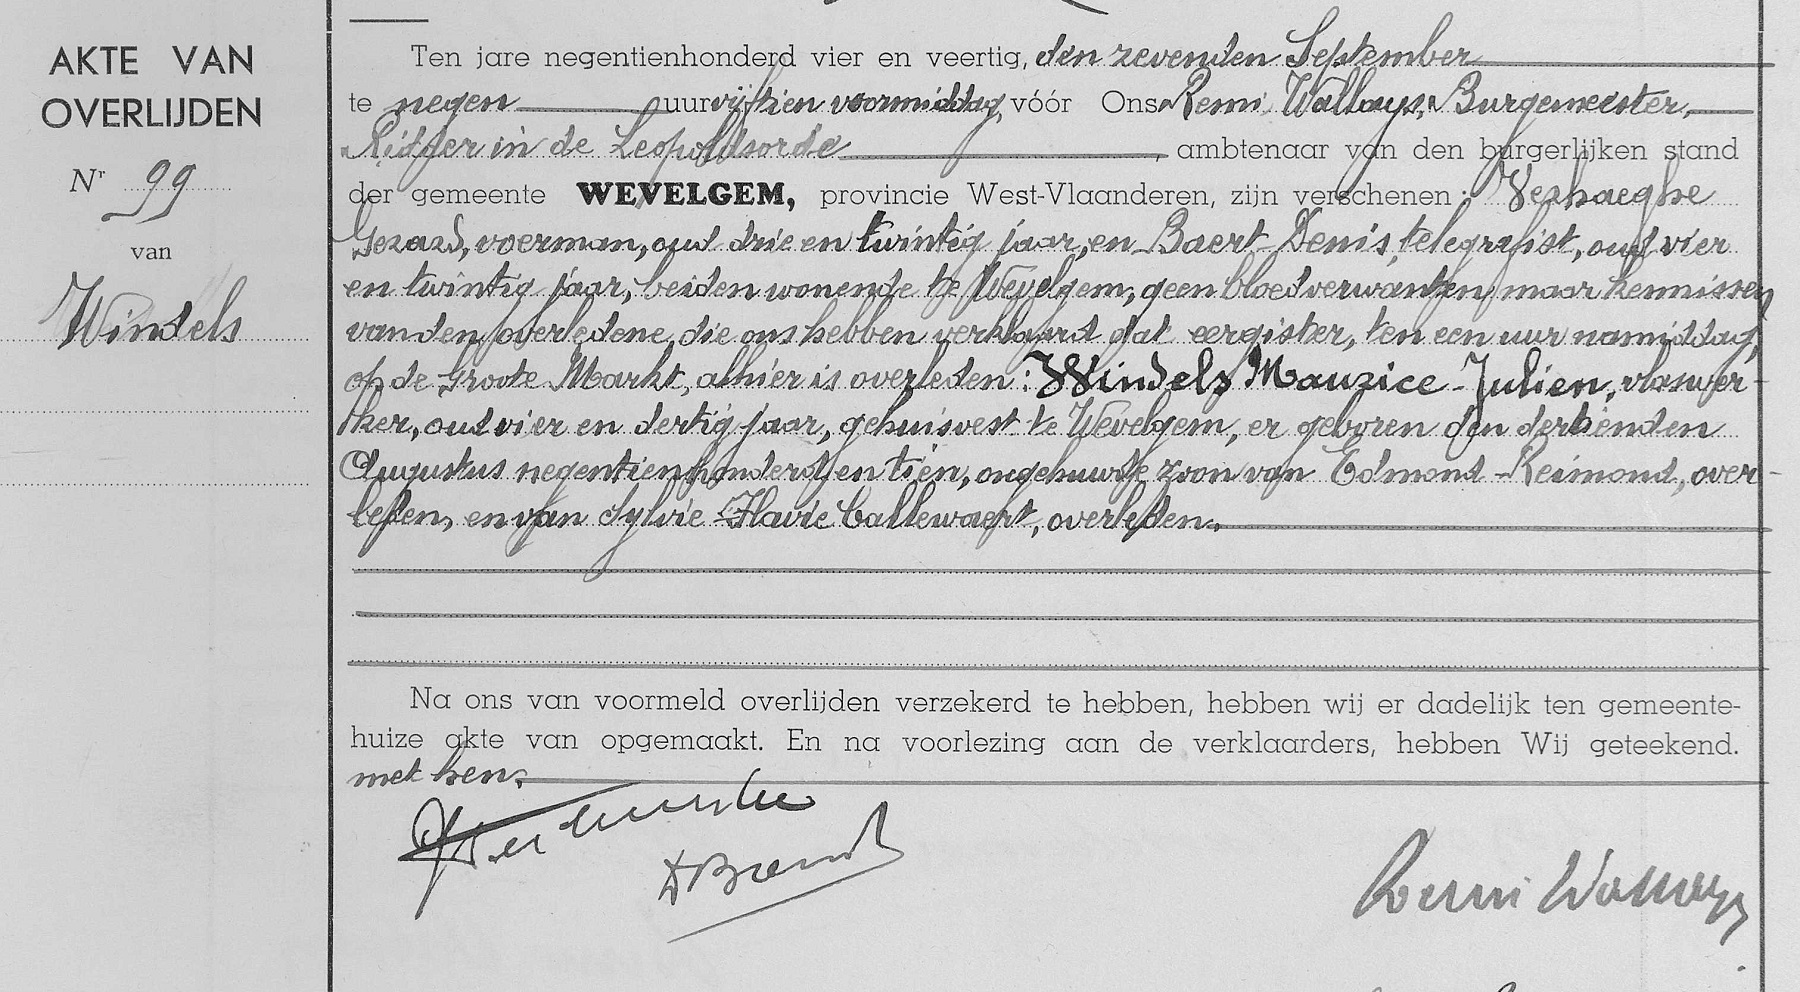 AKTE VAN
OVERLIJDEN
Nr 99
van
Windels
Ten jare negentienhonderd vier en veertig, den zevenden September
te negen uur vijftien voormiddag, vóór Ons Remi Wallays, Burgemeester,
Ridder in de Leopoldsorde, ambtenaar van den burgerlijken stand
der gemeente WEVELGEM, provincie West-Vlaanderen, zijn verschenen : Verhaeghe
Gerard, voerman, oud drie en twintig jaar, en Baert Denis, telegrafist, oud vier
en twintig jaar, beiden wonende te Wevelgem, geen bloedverwanten, maar kennissen
van den overledene, die ons hebben verklaard dat eergister, ten een uur namiddag,
op de Groote Markt, alhier is overleden : Windels Maurice - Julien, vlaswer-
ker, oud vier en dertig jaar, gehuisvest te Wevelgem, er geboren den dertienden
Augustus negentienhonderd en tien, ongehuwde zoon van Edmond - Reimond, over-
leden, en van Sylvie Flavie Callewaert, overleden.
Na ons van voormeld overlijden verzekerd te hebben, hebben wij er dadelijk ten gemeente-
huize akte van opgemaakt. En na voorlezing aan de verklaarders, hebben Wij geteekend.
met hen.
DBaert
Remi Wallays